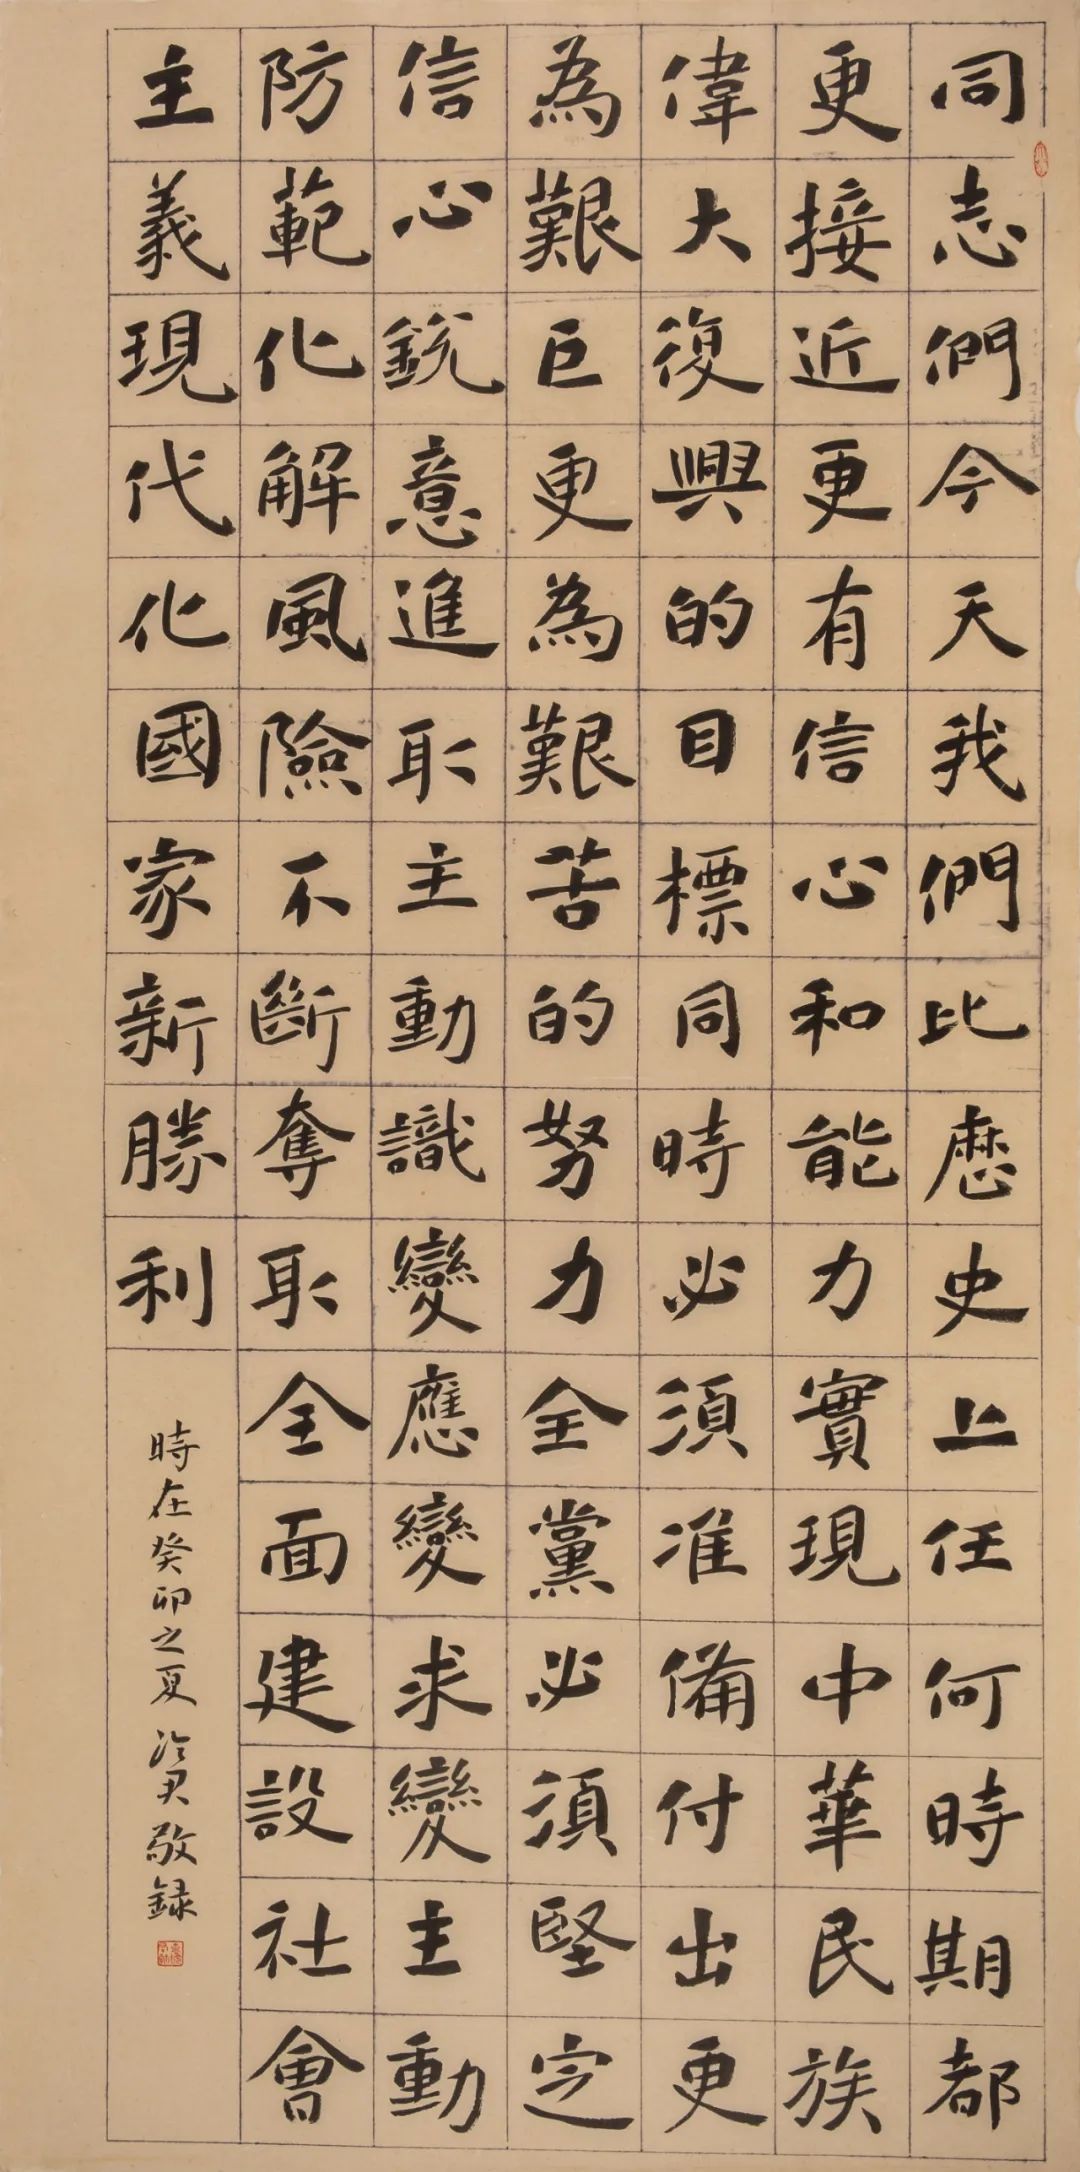 同志們今天我們比歷史上任何時期都
更接近更有信心和能力實現中華民族
偉大復興的目標同時必須准備付出更
為艱巨更為艱苦的努力全黨必須堅定
信心銳意進取主動識變應變求變主動
防範化解風險不斷奪取全面建設社會
主義現代化國家新勝利
時在癸卯之夏冷尹敬録